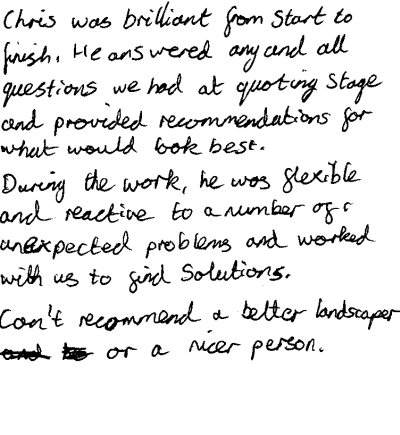 Chris was brilliant from start to
finish. He answered any and all
questions we had at quoting stage
and provided recommendations for
what would look best.
During the work, he was flexible
and reactive to a number of
unexpected problems and worked
with us to find solutions.
Can't recommend a better landscaper
or a nicer person.